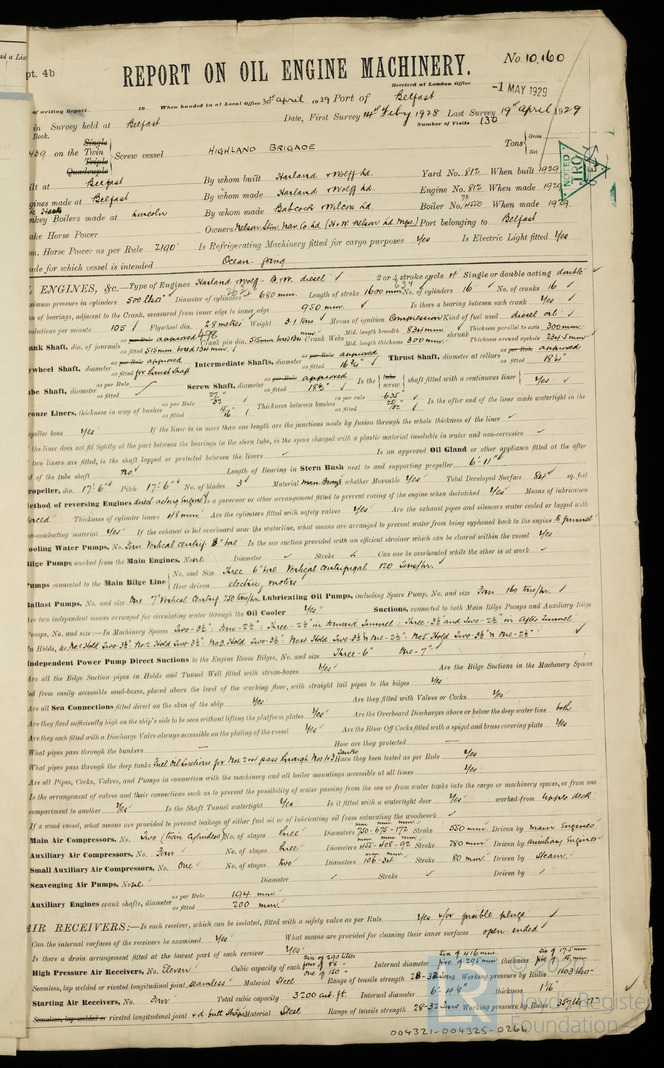 pt. 4b
REPORT ON OIL ENGINE MACHINERY.
No. 10,160
Received at London Office -1 MAY 1929
of writing Report 19 When handed in at Local Office 30th April 1929 Port of Belfast
in Survey held at Belfast Date, First Survey 14th Feby 1928 Last Survey 19th April 1929
Book. Number of Visits 130
on the Single Twin Triple Quadruple Screw vessel HIGHLAND BRIGADE Tons Gross Net
ilt at Belfast By whom built Harland & Wolff Ld. Yard No. 812 When built 1929
gines made at Belfast By whom made Harland & Wolff Ld. Engine No. 812 When made 1929
nkey Boilers made at Lincoln By whom made Babcock Wilcox Ld. Boiler No. When made 1929
ake Horse Power Owners Nelson Stm. Nav. Co. Ld. (H. & W. Nelson Ld. Mgrs) Port belonging to Belfast
m. Horse Power as per Rule 2190 Is Refrigerating Machinery fitted for cargo purposes Yes Is Electric Light fitted Yes
ade for which vessel is intended Ocean-going
L ENGINES, &c.—Type of Engines Harland Wolff - B & W. diesel 2 or 4 stroke cycle 4 Single or double acting double
ximum pressure in cylinders 500 lbs Diameter of cylinders 680 mm. Length of stroke 1600 mm No. of cylinders 16 No. of cranks 16
n of bearings, adjacent to the Crank, measured from inner edge to inner edge 950 mm Is there a bearing between each crank Yes
olutions per minute 105 Flywheel dia. 2.8 metres Weight 3.1 tons Means of ignition Compression Kind of fuel used diesel oil
ank Shaft, dia. of journals as per Rule approved as fitted Crank pin dia. Mid. length breadth 830 mm. Mid. length thickness 300 mm. shrunk Thickness parallel to axis 300 mm. Thickness around eyehole
ywheel Shaft, diameter as per Rule approved as fitted for thrust shaft Intermediate Shafts, diameter as per Rule approved as fitted Thrust Shaft, diameter at collars as per Rule approved as fitted
ube Shaft, diameter as per Rule as fitted Screw Shaft, diameter as per Rule approved as fitted Is the tube screw shaft fitted with a continuous liner Yes
ronze Liners, thickness in way of bushes as per Rule as fitted Thickness between bushes as per rule as fitted Is the after end of the liner made watertight in the
opeller boss Yes If the liner is in more than one length are the junctions made by fusion through the whole thickness of the liner
the liner does not fit tightly at the part between the bearings in the stern tube, is the space charged with a plastic material insoluble in water and non-corrosive
two liners are fitted, is the shaft lapped or protected between the liners Is an approved Oil Gland or other appliance fitted at the after
d of the tube shaft No. Length of Bearing in Stern Bush next to and supporting propeller 6'-11"
ropeller, dia. 17'-6" Pitch 17'-6" No. of blades 3 Material Man. Bronze whether Moveable Yes Total Developed Surface 84 sq. feet
ethod of reversing Engines direct acting Engines Is a governor or other arrangement fitted to prevent racing of the engine when declutched Yes Means of lubrication
forced Thickness of cylinder liners 48 mm Are the cylinders fitted with safety valves Yes Are the exhaust pipes and silencers water cooled or lagged with
n-conducting material Yes If the exhaust is led overboard near the waterline, what means are arranged to prevent water from being syphoned back to the engine to funnel
ooling Water Pumps, No. Four Vertical centrif. 8" bore Is the sea suction provided with an efficient strainer which can be cleared within the vessel Yes
Bilge Pumps worked from the Main Engines, No. None Diameter Stroke Can one be overhauled while the other is at work
umps connected to the Main Bilge Line No. and Size Three 6" bore Vertical Centrifugal 120 Tons/hr.
How driven electric motors
Ballast Pumps, No. and size One 7" Vertical Centrif 250 tons/hr Lubricating Oil Pumps, including Spare Pump, No. and size Four 160 tons/hr.
re two independent means arranged for circulating water through the Oil Cooler Yes Suctions, connected to both Main Bilge Pumps and Auxiliary Bilge
umps, No. and size:—In Machinery Spaces Two-3½" Four-2½" in Tunnel; Three-3½" and Two-2½" in After Tunnel
In Holds, &c. No1 Hold Two-3½" No2 Hold Two-3½" No3 Hold Two-3½" No4 Hold Two 3½" & One-2½" No5 Hold Two-3½" & One-2½"
Independent Power Pump Direct Suctions to the Engine Room Bilges, No. and size Three-6" One-7"
Are all the Bilge Suction pipes in Holds and Tunnel Well fitted with strum-boxes Yes Are the Bilge Suctions in the Machinery Spaces
led from easily accessible mud-boxes, placed above the level of the working floor, with straight tail pipes to the bilges Yes
Are all Sea Connections fitted direct on the skin of the ship Yes Are they fitted with Valves or Cocks Yes
Are they fixed sufficiently high on the ship's side to be seen without lifting the platform plates Yes Are the Overboard Discharges above or below the deep water line both
Are they each fitted with a Discharge Valve always accessible on the plating of the vessel Yes Are the Blow Off Cocks fitted with a spigot and brass covering plate Yes
What pipes pass through the bunkers — How are they protected —
What pipes pass through the deep tanks Fuel Oil Suctions for Nos 2 & 4 pass through Nos 4 & 3 Tanks Have they been tested as per Rule Yes
Are all Pipes, Cocks, Valves, and Pumps in connection with the machinery and all boiler mountings accessible at all times Yes
Is the arrangement of valves and their connections such as to prevent the possibility of water passing from the sea or from water tanks into the cargo or machinery spaces, or from one
compartment to another Yes Is the Shaft Tunnel watertight Yes Is it fitted with a watertight door Yes worked from upper deck
If a wood vessel, what means are provided to prevent leakage of either fuel oil or of lubricating oil from saturating the woodwork
Main Air Compressors, No. Two (twin cylinders) No. of stages three Diameters 750-675-172 mm Stroke 550 mm. Driven by Main Engines
Auxiliary Air Compressors, No. Four No. of stages three Diameters 455-408-92 mm Stroke 280 mm Driven by Auxiliary Engines
Small Auxiliary Air Compressors, No. One No. of stages two Diameters 106-34 mm Stroke 80 mm Driven by Steam
Scavenging Air Pumps, No. None Diameter Stroke Driven by
Auxiliary Engines crank shafts, diameter as per Rule 194 mm. as fitted 200 mm.
AIR RECEIVERS:—Is each receiver, which can be isolated, fitted with a safety valve as per Rule Yes &/or fusible plugs
Can the internal surfaces of the receivers be examined Yes What means are provided for cleaning their inner surfaces open ended
Is there a drain arrangement fitted at the lowest part of each receiver Yes
High Pressure Air Receivers, No. Eleven Cubic capacity of each Internal diameter thickness
Seamless, lap welded or riveted longitudinal joint seamless Material Steel Range of tensile strength 28-32 Tons Working pressure by Rules
Starting Air Receivers, No. Four Total cubic capacity 3200 cub. ft. Internal diameter thickness
Seamless, lap welded or riveted longitudinal joint r.d. butt straps Material Steel Range of tensile strength 28-32 Tons Working pressure by Rules
004321-004325-0266
Lloyd's Register
Foundation